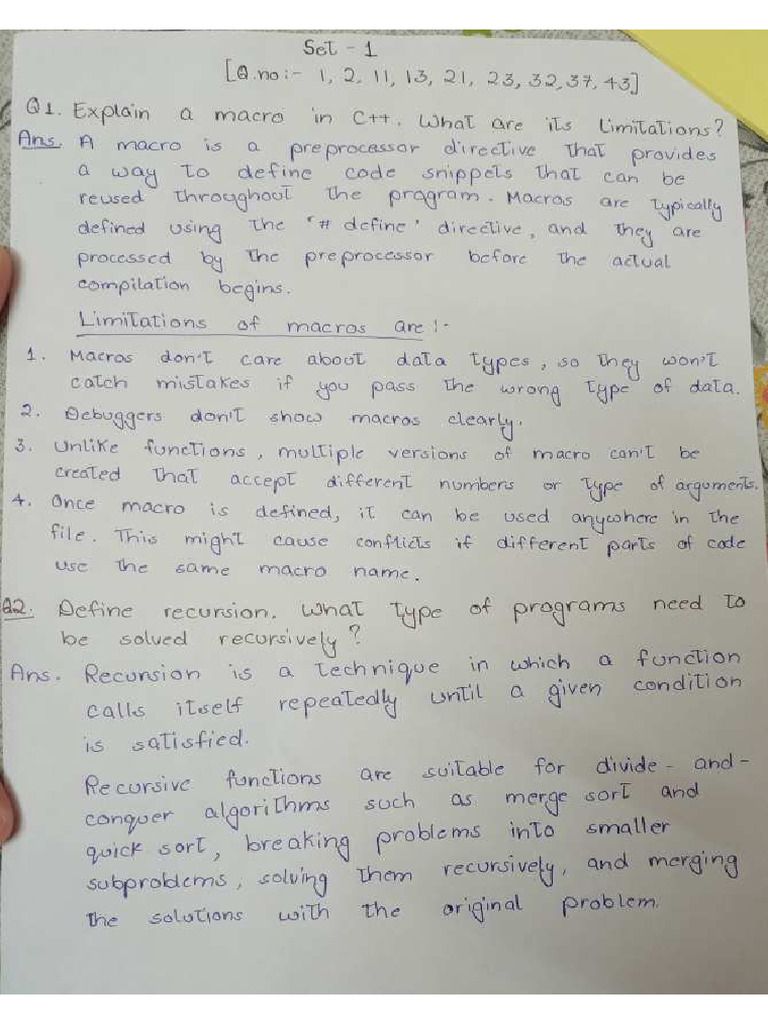 Set - 1
[Q.no:- 1, 2, 11, 13, 21, 23, 32, 37, 43]
Q1. Explain a macro in C++. What are its Limitations?
Ans. A macro is a preprocessor directive that provides
a way to define code snippets that can be
reused throughout the program. Macros are typically
defined using the '# define' directive, and they are
processed by the preprocessor before the actual
compilation begins.
Limitations of macros are:-
1. Macros don't care about data types, so they won't
catch mistakes if you pass the wrong type of data.
2. Debuggers don't show macros clearly.
3. Unlike functions, multiple versions of macro can't be
created that accept different numbers or type of arguments.
4. Once macro is defined, it can be used anywhere in the
file. This might cause conflicts if different parts of code
use the same macro name.
Q2. Define recursion. What type of programs need to
be solved recursively?
Ans. Recursion is a technique in which a function
calls itself repeatedly until a given condition
is satisfied.
Recursive functions are suitable for divide-and-
conquer algorithms such as merge sort and
quick sort, breaking problems into smaller
subproblems, solving them recursively, and merging
the solutions with the original problem.